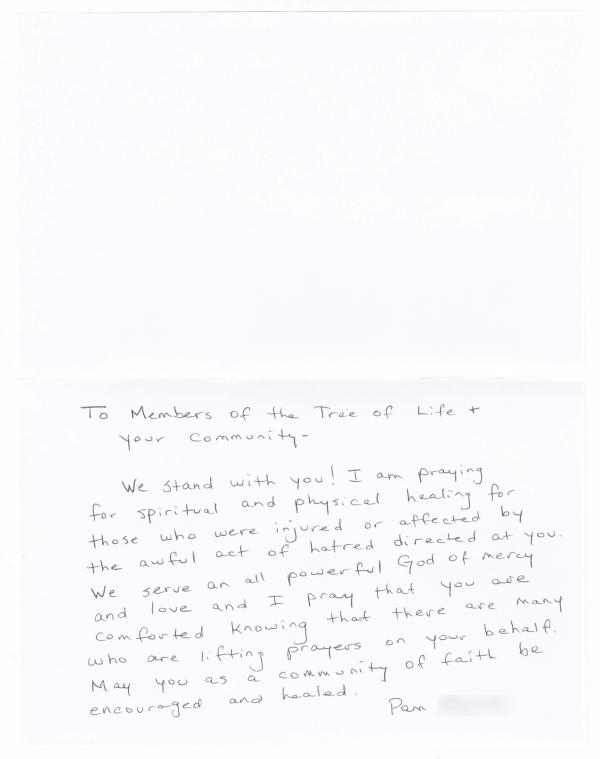 To Members of the Tree of Life +
your Community-
We stand with you! I am praying
for spiritual and physical healing for
those who were injured or affected by
the awful act of hatred directed at you.
We serve an all powerful God of mercy
and love and I pray that you are
comforted knowing that there are many
who are lifting prayers on your behalf.
May you as a community of faith be
encouraged and healed.
Pam